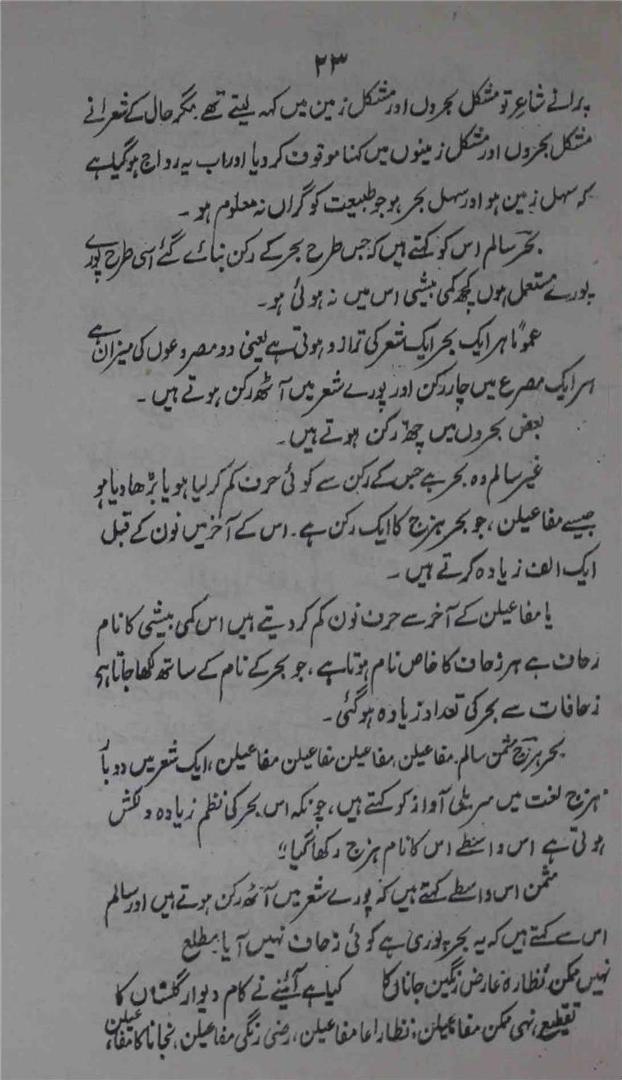 ۲۳
پرانے شاعر تو مشکل بحروں اور مشکل زمین میں کہہ لیتے تھے مگر حال کے شعرا نے
مشکل بحروں اور مشکل زمینوں میں کہنا موقوف کر دیا اور اب یہ رواج ہو گیا ہے
کہ سہل زمین ہو اور سہل بحر ہو جو طبیعت کو گراں نہ معلوم ہو ۔
بحر سالم اس کو کہتے ہیں کہ جس طرح بحر کے رکن بنائے گئے اسی طرح پورے
پورے مستعمل ہوں کچھ کمی بیشی اس میں نہ ہوئی ہو ۔
عموماً ہر ایک بحر ایک شعر کی ترازو ہوتی ہے یعنی دو مصروعوں کی میزان ہے
ہر ایک مصرع میں چار رکن اور پورے شعر میں آٹھ رکن ہوتے ہیں ۔
بعض بحروں میں چھ رکن ہوتے ہیں ۔
غیر سالم وہ بحر ہے جس کے رکن سے کوئی حرف کم کر لیا ہو یا بڑھا دیا ہو
جیسے مفاعیلن ، جو بحر ہزج کا ایک رکن ہے ۔ اس کے آخر میں نون کے قبل
ایک الف زیادہ کرتے ہیں ۔
یا مفاعیلن کے آخر سے حرف نون کم کر دیتے ہیں اس کمی بیشی کا نام
زحاف ہے ہر زحاف کا خاص نام ہوتا ہے ، جو بحر کے نام کے ساتھ لکھا جاتا ہے
زحافات سے بحر کی تعداد زیادہ ہو گئی ۔
بحر ہزج مثمن سالم ۔ مفاعیلن مفاعیلن مفاعیلن مفاعیلن ، ایک شعر میں دو بار
ہزج لغت میں سریلی آواز کو کہتے ہیں ، چونکہ اس بحر کی نظم زیادہ دلکش
ہوتی ہے اس واسطے اس کا نام ہزج رکھا گیا ؛
مثمن اس واسطے کہتے ہیں کہ پورے شعر میں آٹھ رکن ہوتے ہیں اور سالم
اس سے کہتے ہیں کہ یہ بحر پوری ہے کوئی زحاف نہیں آیا ۔ مطلع
نہیں ممکن نظارہ عارض رنگین جاناں کا کیا ہے آئینے نے کام دیوار گلستاں کا
تقطیع ، نہی ممکن مفاعیلن ؛ نظارا عا مفاعیلن ، رضی رنگی مفاعیلن ، نجانا کا مفاعیلن